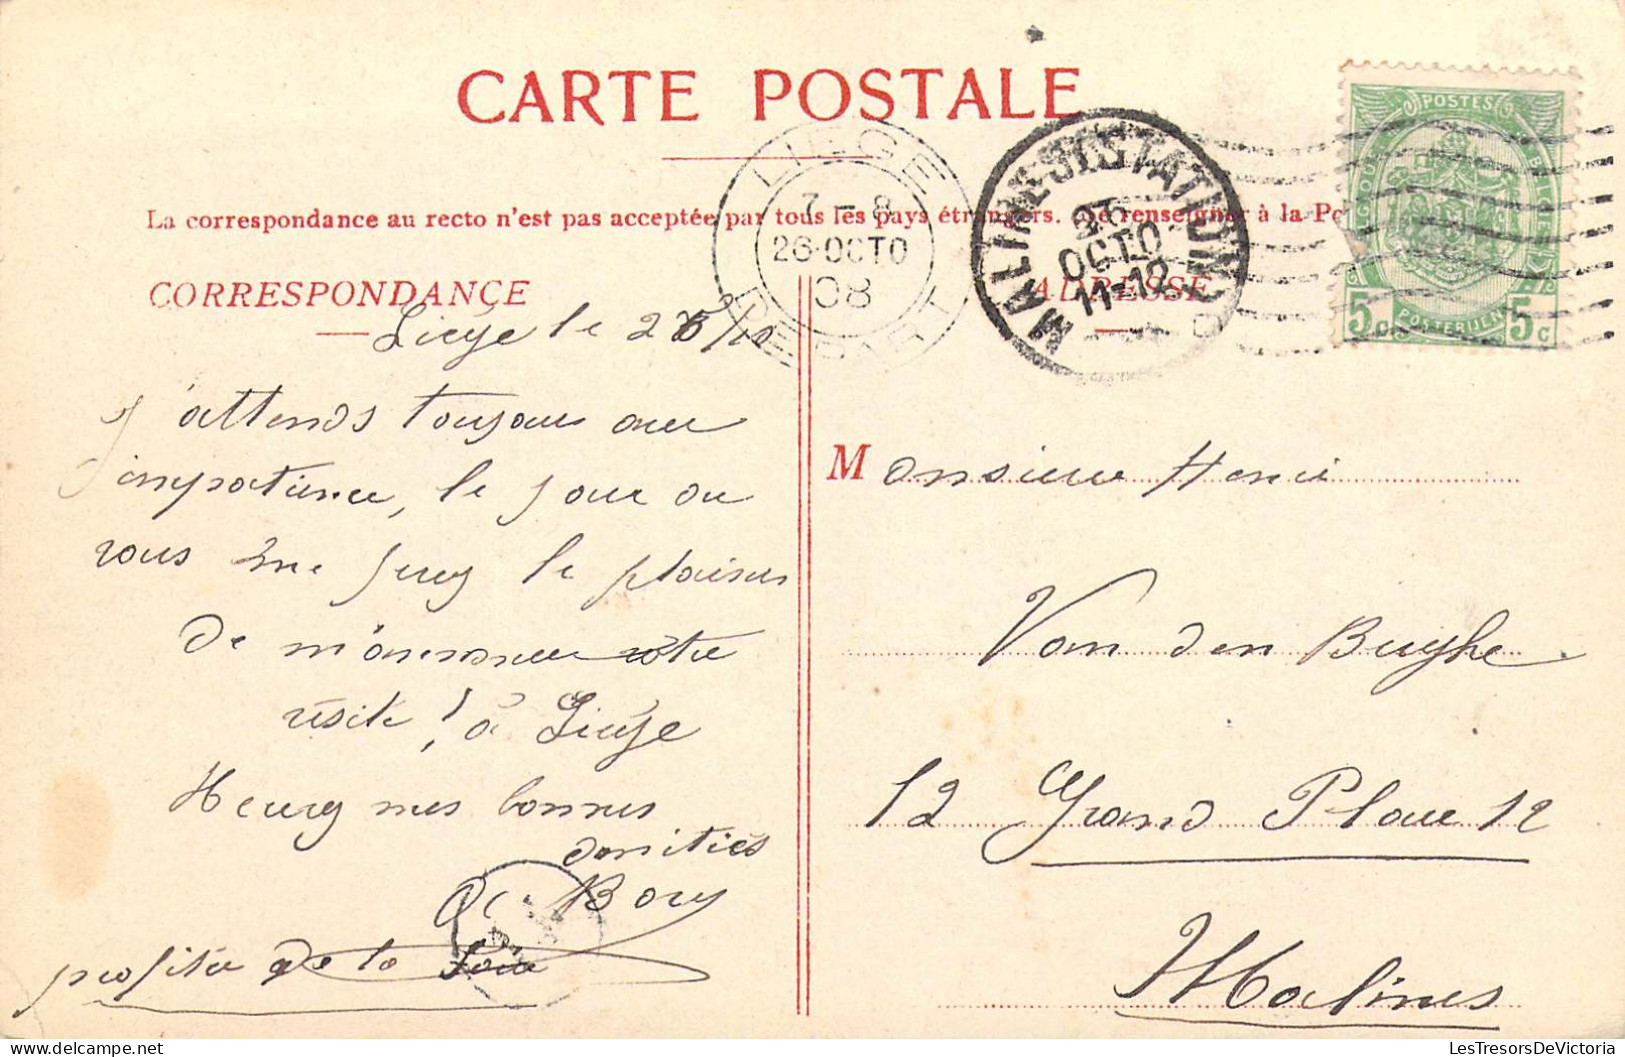 CARTE POSTALE
La correspondance au recto n'est pas acceptée par tous les pays étrangers. (Se renseigner à la Po
CORRESPONDANCE
Liège le 26/10
J'attends toujours avec
impatience, le jour ou
vous me ferez le plaisir
de m'annoncer votre
visite ! à Liège
Recevez mes bonnes
amitiés
Bory
profiter de la foire
LIEGE
7 - 8
26 OCTO
08
DEPART
MALINES (STATION)
26
OCTO
11-12
POSTES
BELGIQUE
5c POSTERIJEN 5c
ADRESSE
Monsieur Henri
Van den Berghe
12 Grand Place 12
Malines
LesTresorsDeVictoria